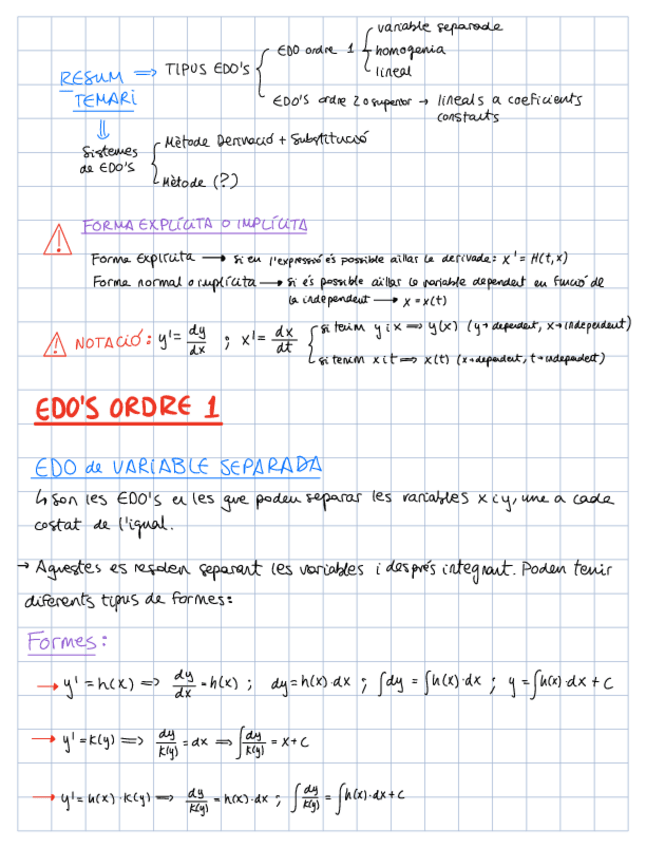 RESUM TEMARI ⇒ TIPUS EDO'S
EDO ordre 1
variable separada
homogenia
lineal
EDO'S ordre 2 o superior → lineals a coeficients constants
⇓
Sistemes de EDO'S
Mètode Derivació + Substitució
Mètode (?)
FORMA EXPLÍCITA O IMPLÍCITA
Forma Explícita → si en l'expressió és possible aïllar la derivada: x' = H(t,x)
Forma normal o implícita → si és possible aïllar la variable dependent en funció de
la independent → x = x(t)
NOTACIÓ: y' = dy/dx ; x' = dx/dt
si tenim y i x ⇒ y(x) (y→dependent, x→independent)
si tenim x i t ⇒ x(t) (x→dependent, t→independent)
EDO'S ORDRE 1
EDO de VARIABLE SEPARADA
↳ son les EDO's en les que podem separar les variables x i y, una a cada
costat de l'igual.
→ Aquestes es resolen separant les variables i després integrant. Poden tenir
diferents tipus de formes:
Formes:
→ y' = h(x) ⇒ dy/dx = h(x) ; dy = h(x)·dx ; ∫dy = ∫h(x)·dx ; y = ∫h(x)·dx + C
→ y' = k(y) ⇒ dy/k(y) = dx ⇒ ∫dy/k(y) = x + C
→ y' = h(x)·k(y) ⇒ dy/k(y) = h(x)·dx ; ∫dy/k(y) = ∫h(x)·dx + C